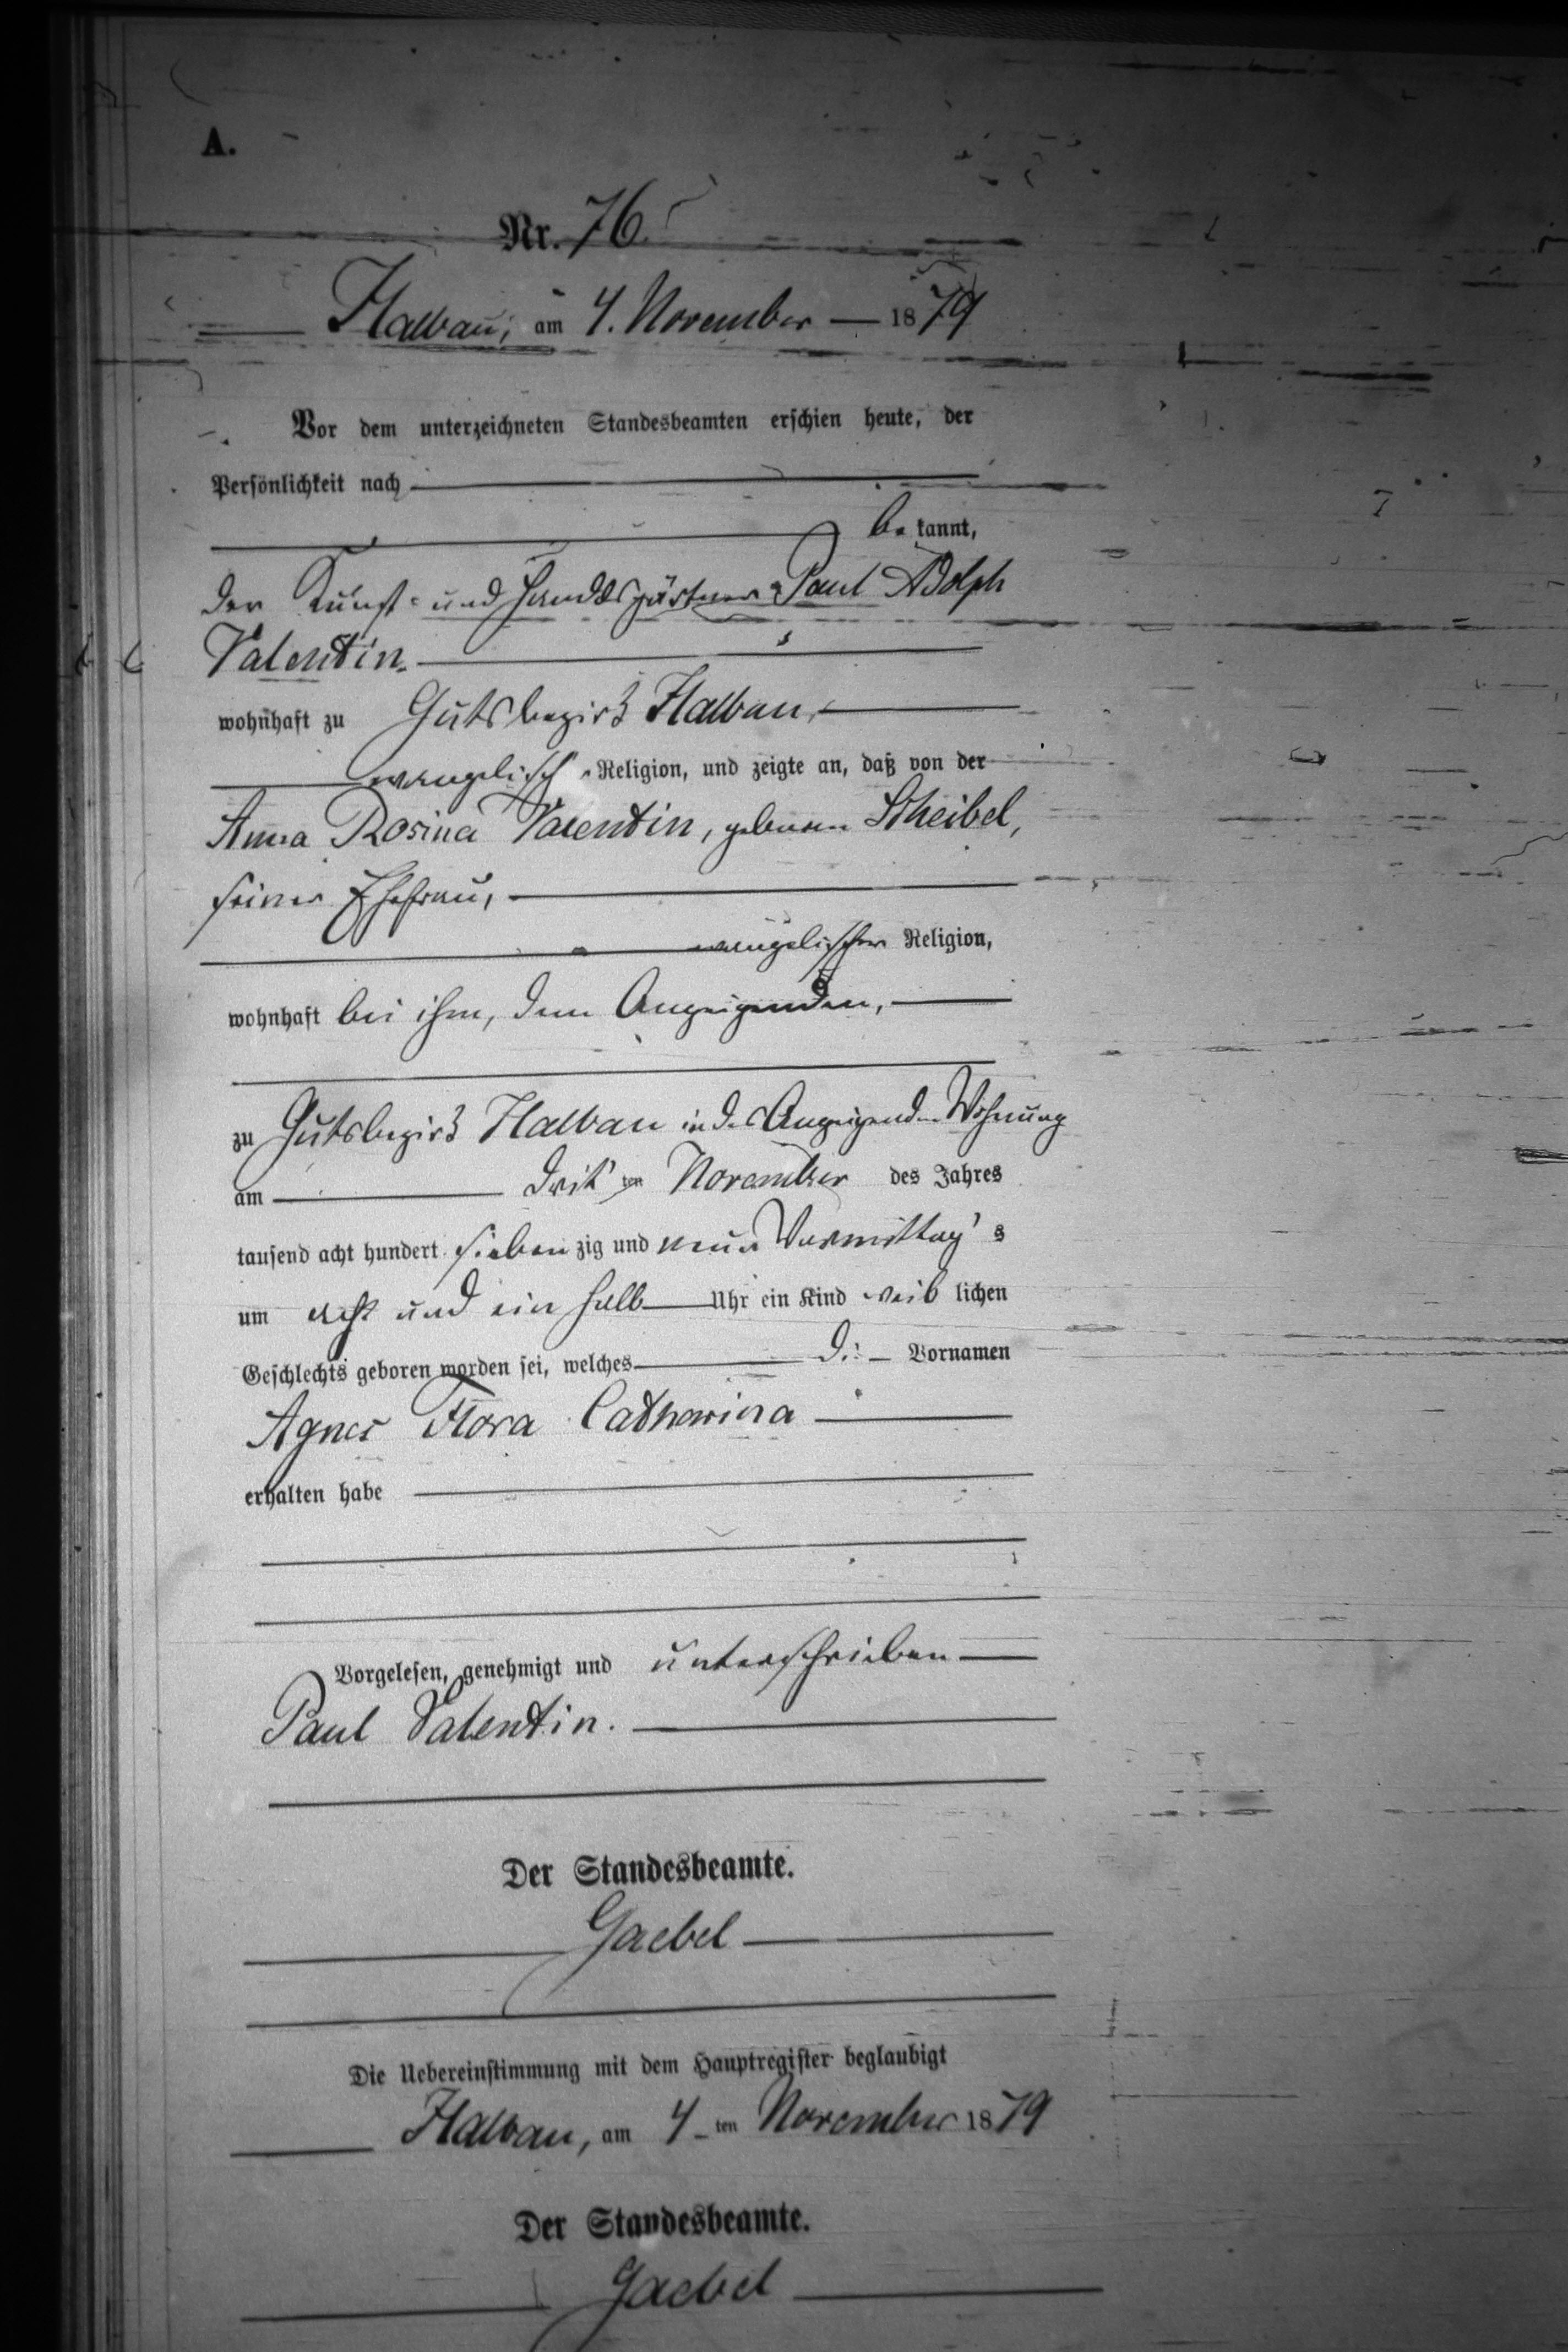 A.
Nr. 76.
Halbau, am 4. November 1879
Vor dem unterzeichneten Standesbeamten erschien heute, der
Persönlichkeit nach
be kannt,
der Kunst- und Handelsgärtner Paul Adolph
Valentin.
wohnhaft zu Gutsbezirk Halbau,
evangelisch Religion, und zeigte an, daß von der
Anna Rosina Valentin, geborene Scheibel,
seiner Ehefrau,
evangelischer Religion,
wohnhaft bei ihm, dem Anzeigenden,
zu Gutsbezirk Halbau in des Anzeigenden Wohnung
am dritten November des Jahres
tausend acht hundert siebenzig und neun Vormittags
um acht und ein halb Uhr ein Kind weiblichen
Geschlechts geboren worden sei, welches die Vornamen
Agnes Flora Catharina
erhalten habe
Vorgelesen, genehmigt und unterschrieben
Paul Valentin.
Der Standesbeamte.
Gaebel
Die Uebereinstimmung mit dem Hauptregister beglaubigt
Halbau, am 4ten November 1879
Der Standesbeamte.
Gaebel